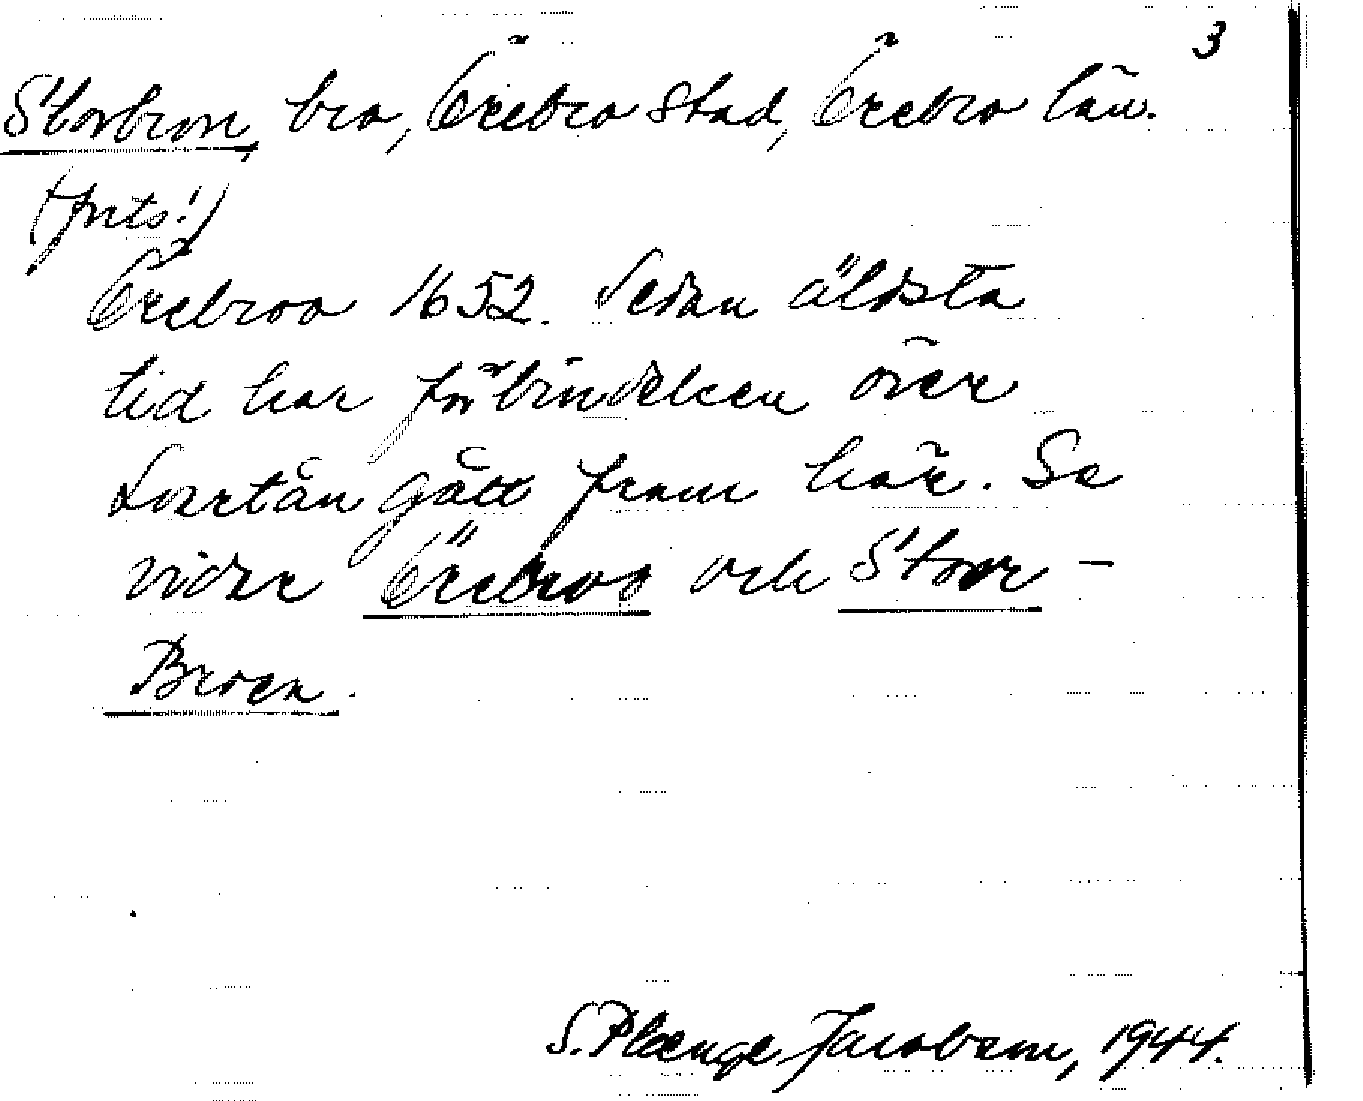 3
Storbron, bro, Örebro stad, Örebro län.
(forts!)
Örebroo 1652. Sedan äldsta
tid har förbindelsen över
Svartån gått fram här. Se
vidare Örebroo och Stoor-
Broen.
S. Plænge Jacobson, 1944.